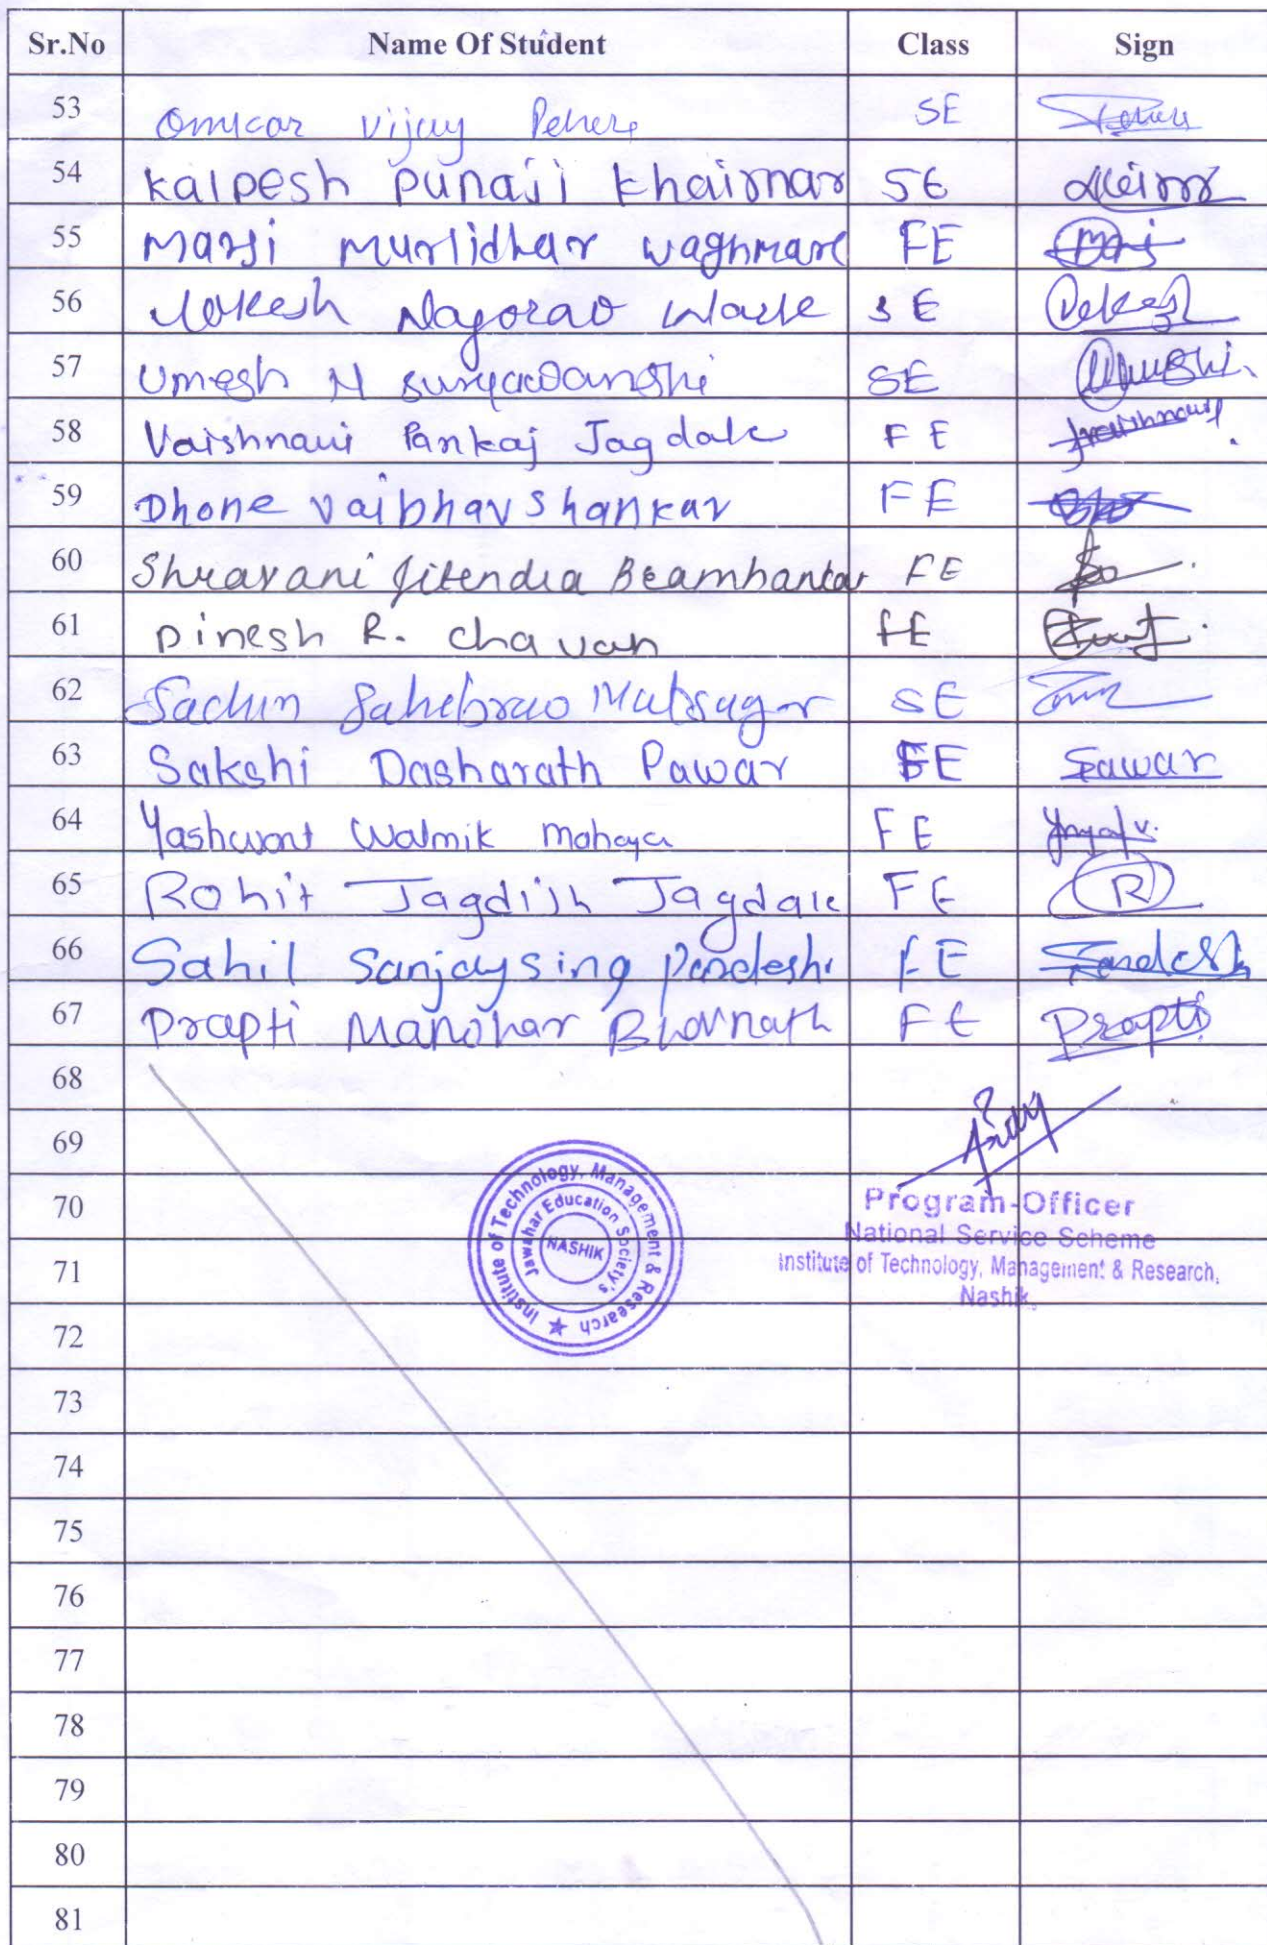 Sr.No Name Of Student Class Sign
53 Omkar Vijay Pehere SE
54 Kalpesh Punaji Khairnar SE
55 Mansi Murlidhar Waghmare FE
56 Lokesh Nagorao Wade SE
57 Umesh N Suryawanshi SE
58 Vaishnavi Pankaj Jagdale FE
59 Dhone Vaibhav Shankar FE
60 Shravani Jitendra Beamhankar FE
61 Dinesh R. Chavan FE
62 Sachin Sahebrao Matsagar SE
63 Sakshi Dasharath Pawar FE Sawar
64 Yashwant Walmik FE
65 Rohit Jagdish Jagdale FE R
66 Sahil Sanjaysing Pardeshi FE
67 Prapti Manohar Bhovnath FE Prapti
68
69
70
71
72
73
74
75
76
77
78
79
80
81
Institute of Technology, Management & Research
Jawahar Education Society's
NASHIK
Program-Officer
National Service Scheme
Institute of Technology, Management & Research,
Nashik.